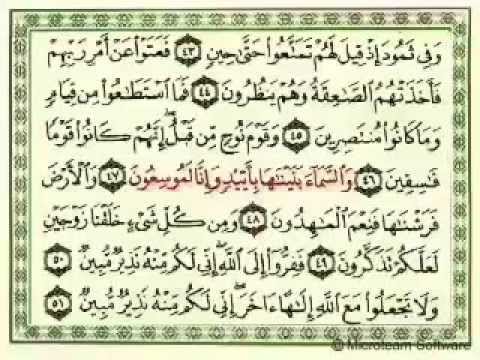 وَفِي ثَمُودَ إِذْ قِيلَ لَهُمْ تَمَتَّعُوا۟ حَتَّىٰ حِينٍ ٤٣ فَعَتَوْا۟ عَنْ أَمْرِ رَبِّهِمْ
فَأَخَذَتْهُمُ ٱلصَّٰعِقَةُ وَهُمْ يَنظُرُونَ ٤٤ فَمَا ٱسْتَطَٰعُوا۟ مِن قِيَامٍ
وَمَا كَانُوا۟ مُنتَصِرِينَ ٤٥ وَقَوْمَ نُوحٍ مِّن قَبْلُ إِنَّهُمْ كَانُوا۟ قَوْمًا
فَٰسِقِينَ ٤٦ وَٱلسَّمَآءَ بَنَيْنَٰهَا بِأَيْي۟دٍ وَإِنَّا لَمُوسِعُونَ ٤٧ وَٱلْأَرْضَ
فَرَشْنَٰهَا فَنِعْمَ ٱلْمَٰهِدُونَ ٤٨ وَمِن كُلِّ شَىْءٍ خَلَقْنَا زَوْجَيْنِ
لَعَلَّكُمْ تَذَكَّرُونَ ٤٩ فَفِرُّوٓا۟ إِلَى ٱللَّهِ إِنِّى لَكُم مِّنْهُ نَذِيرٌ مُّبِينٌ ٥٠
وَلَا تَجْعَلُوا۟ مَعَ ٱللَّهِ إِلَٰهًا ءَاخَرَ إِنِّى لَكُم مِّنْهُ نَذِيرٌ مُّبِينٌ ٥١
© Microteam Software